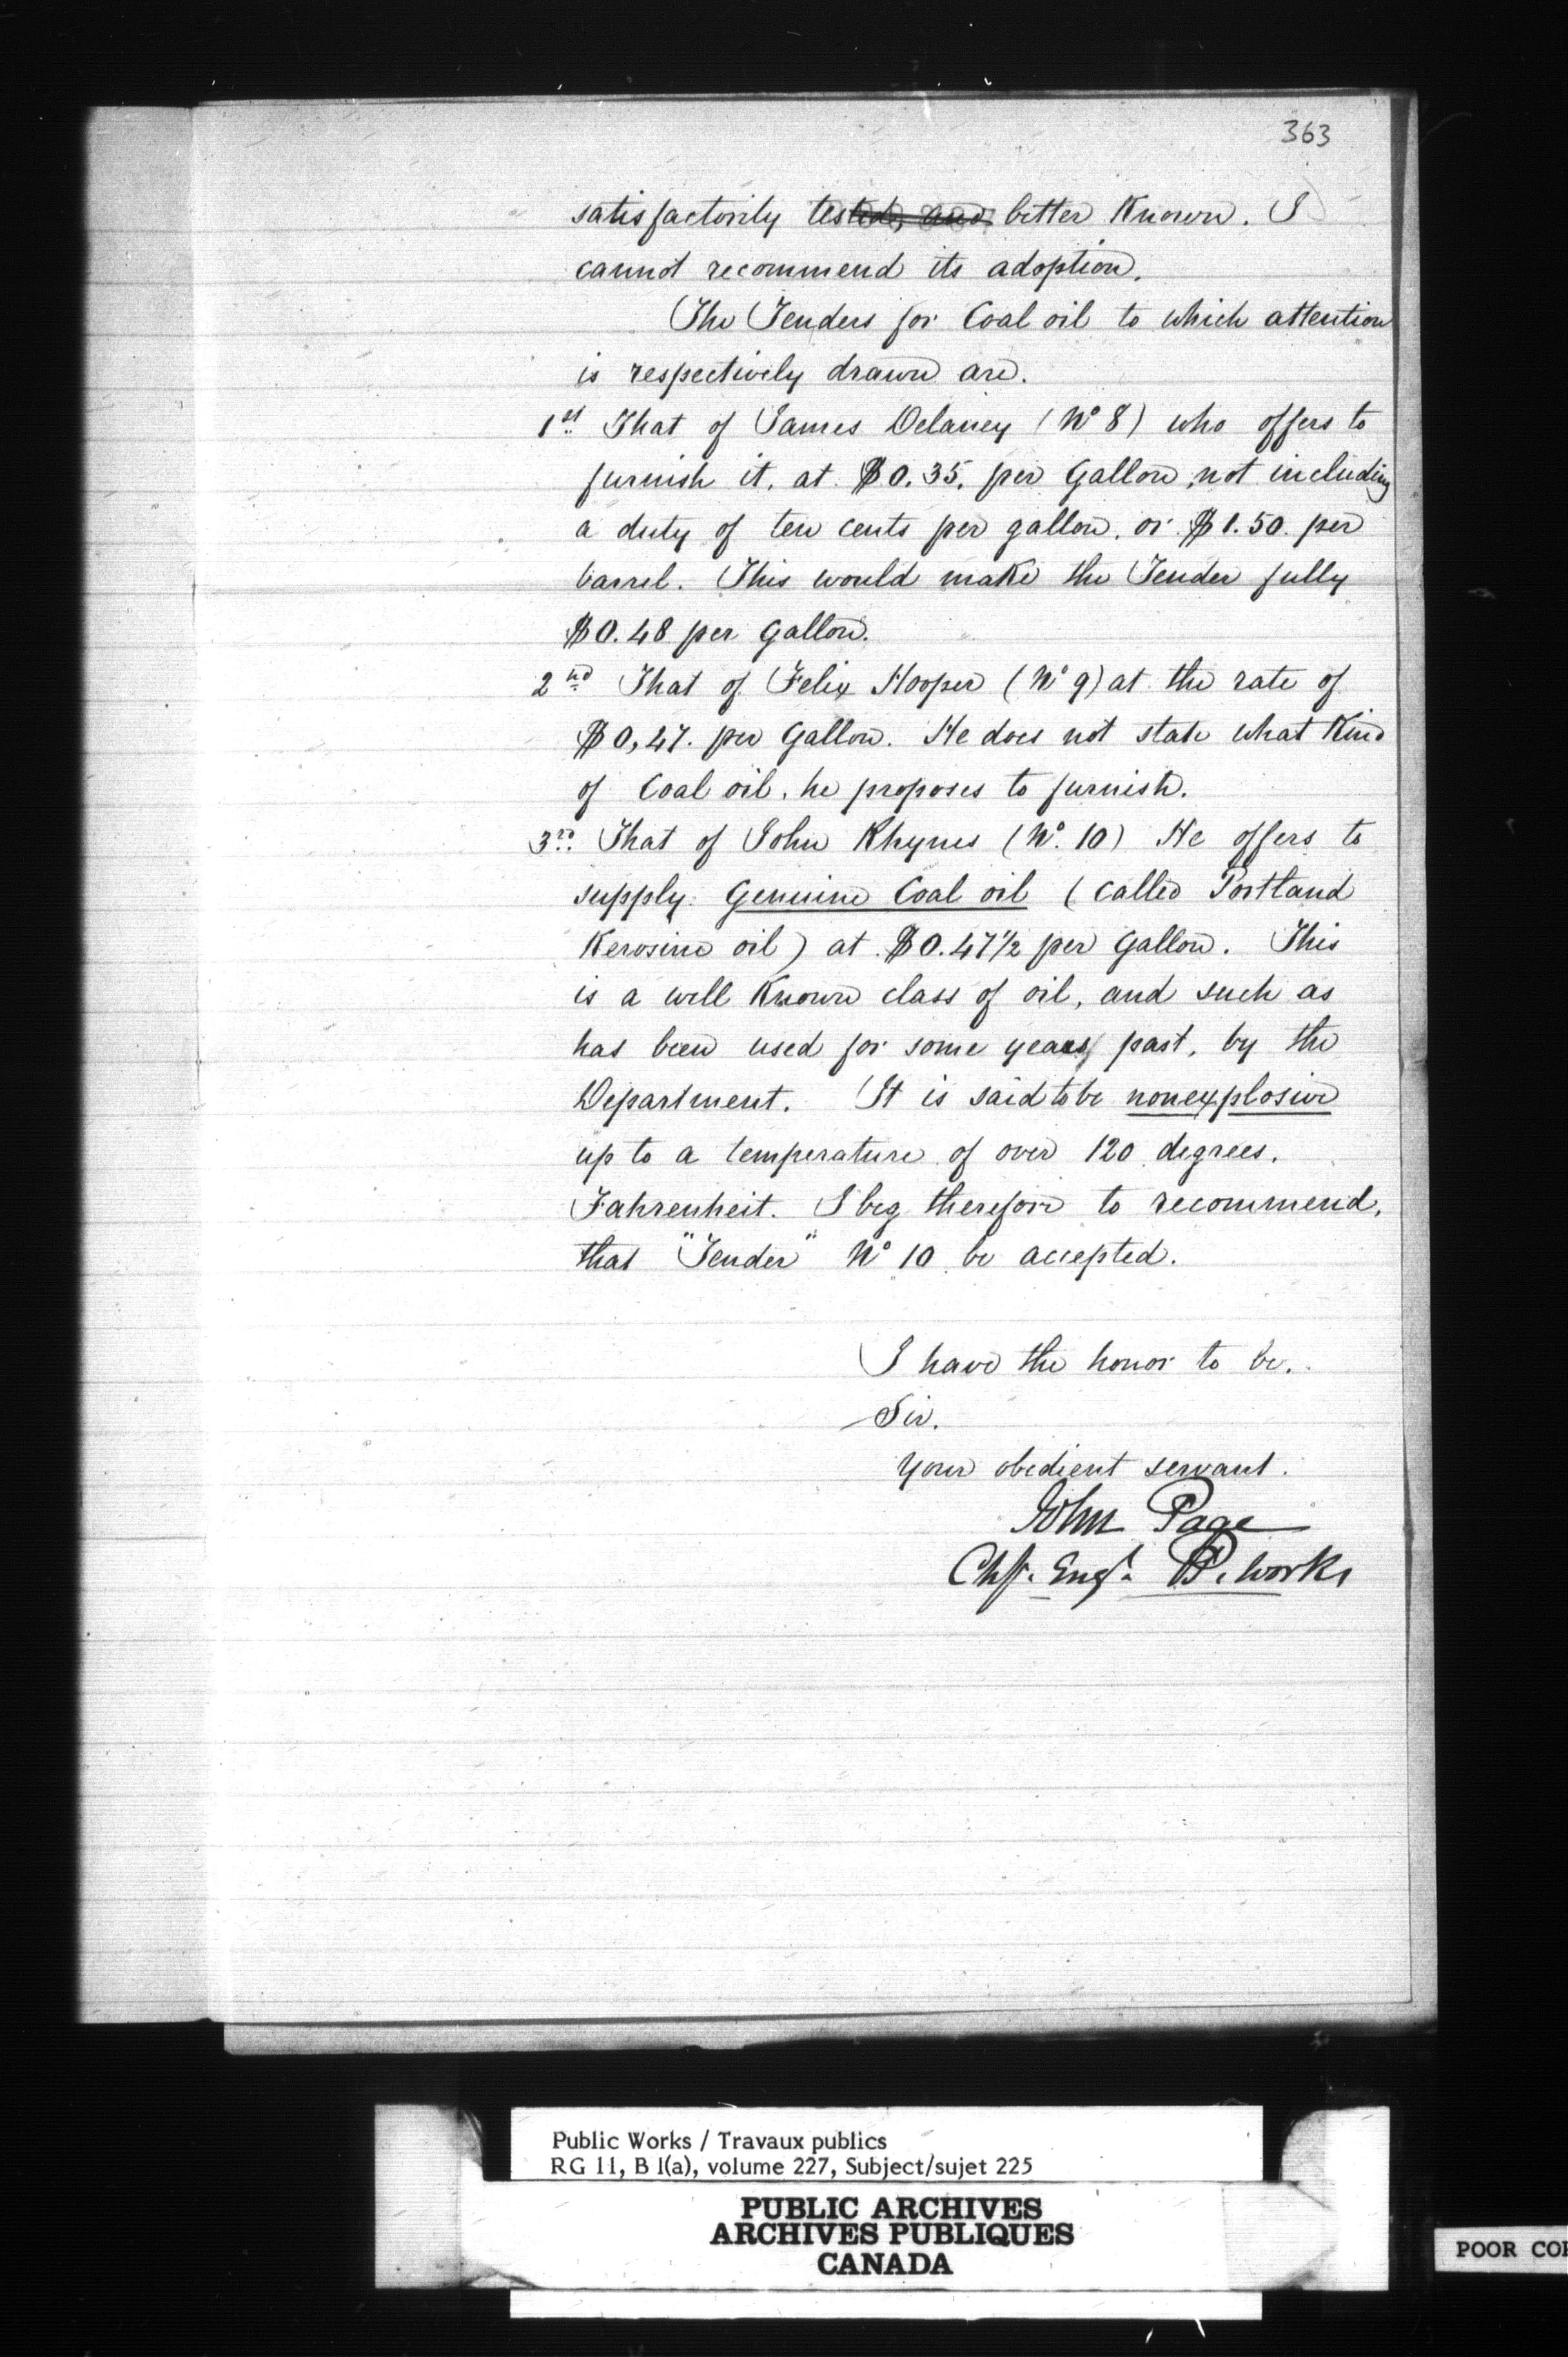 363
satisfactorily tested, and better Known. I
cannot recommend its adoption.
The Tenders for Coal oil to which attention
is respectively drawn are.
1st. That of James Delaney (No 8) who offers to
furnish it, at $0.35. per Gallon, not including
a duty of ten cents per gallon, or $1.50. per
barrel. This would make the Tender fully
$0.48 per Gallon.
2nd That of Felix Hooper (No 9) at the rate of
$0,47. per Gallon. He does not state what Kind
of Coal oil, he proposes to furnish.
3rd. That of John Rhynes (No. 10) He offers to
supply. Genuine Coal oil (called Portland
Kerosine oil) at $0.47 1/2 per Gallon. This
is a well Known class of oil, and such as
has been used for some years past, by the
Department. It is said to be nonexplosive
up to a temperature of over 120 degrees.
Fahrenheit. I beg therefore to recommend,
that "Tender" No 10 be accepted.
I have the honor to be.
Sir.
Your obedient servant.
John Page
Chf. Engr. P. Works
Public Works / Travaux publics
RG 11, B 1(a), volume 227, Subject/sujet 225
PUBLIC ARCHIVES
ARCHIVES PUBLIQUES
CANADA
POOR COP